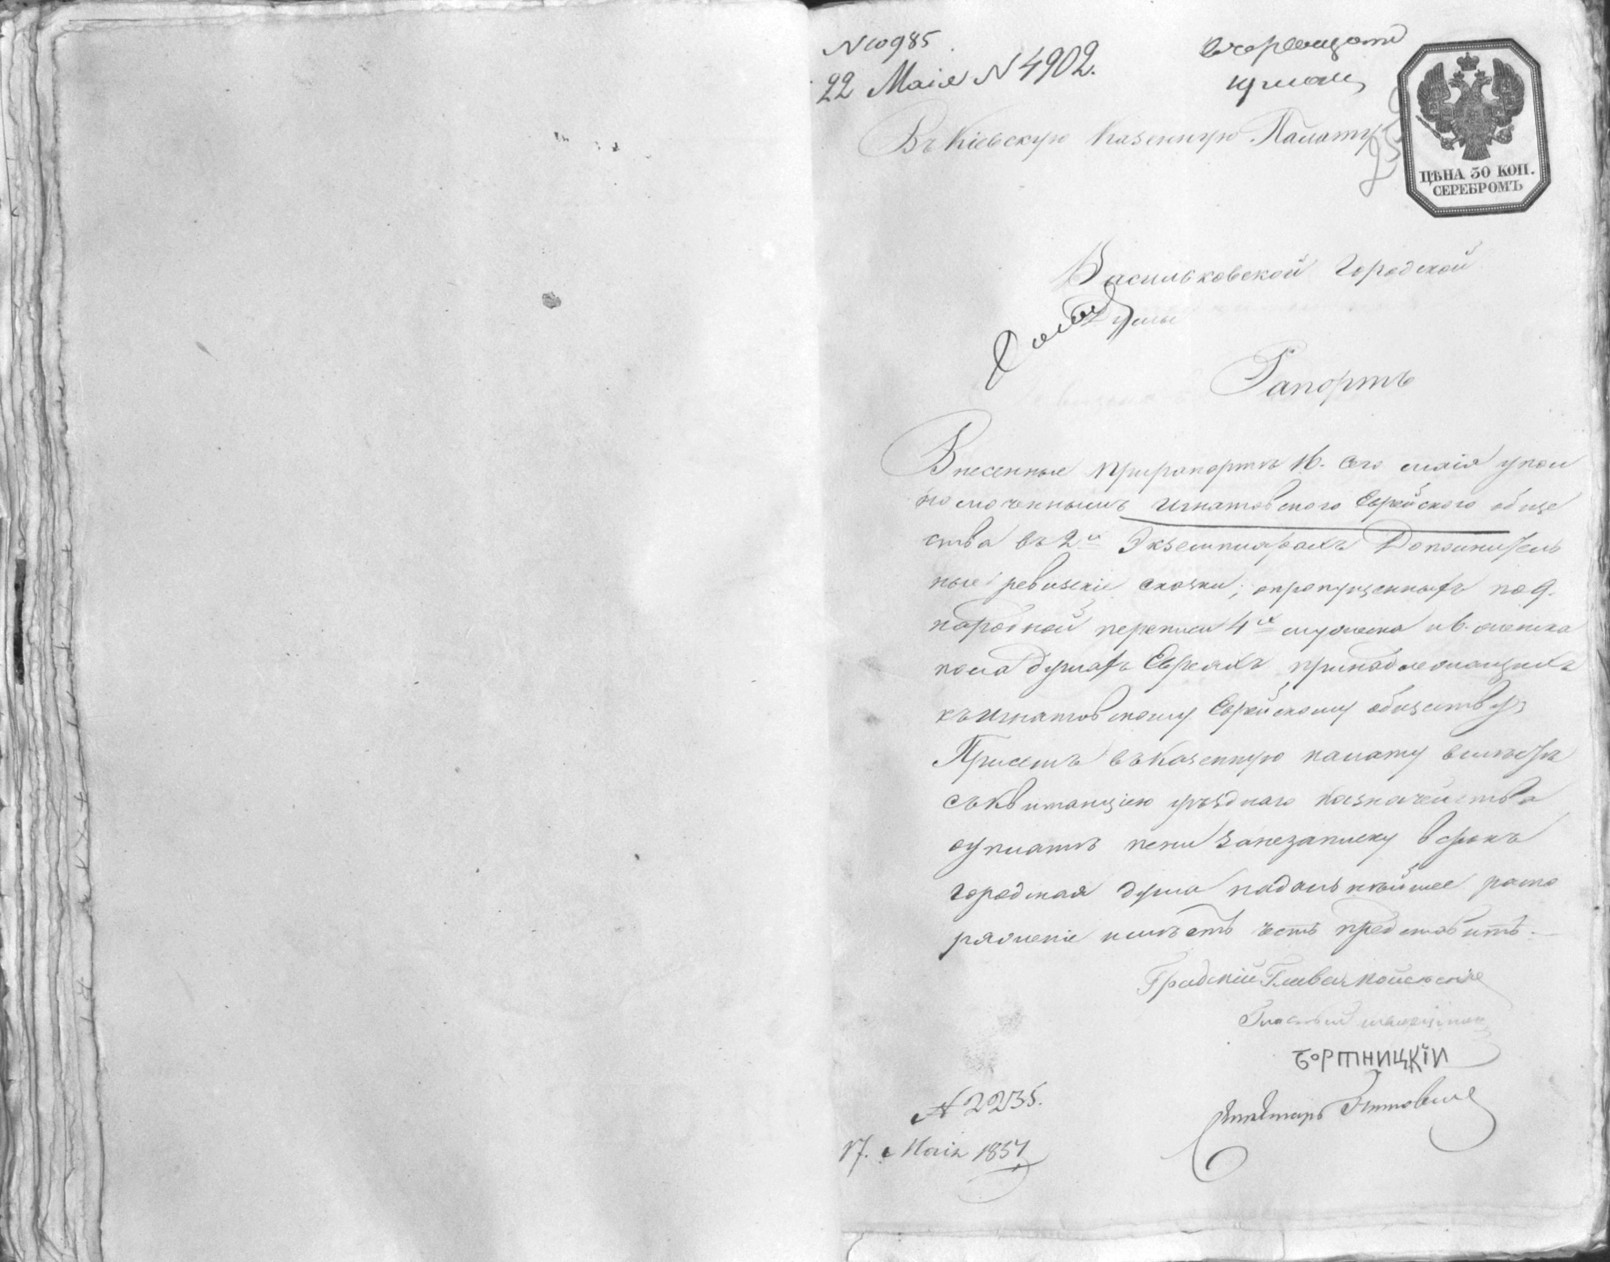 N 10985
22 Маія N 4902.
Въ Кіевскую Казенную Палату
ЦѢНА 30 КОП.
СЕРЕБРОМЪ
Васильковской Городской
Думы
Рапортъ
Внесенные при рапортѣ 16. сего маія упол
номоченнымъ Игнатовского Еврейского обще
ства въ 2х Экземплярахъ Дополнитель
ные ревизскіе сказки, о пропущенныхъ по 9.
народной переписи 4х мужеска и 6. женска
пола душахъ Евреяхъ принадлежащихъ
къ Игнатовскому Еврейскому обществу,
При семъ въ Казенную палату вместѣ
съ квитанціею уѣзднаго казначейства
о уплатѣ пени за незаписку в срокъ
городская дума на дальнѣйшее распо
ряженіе имѣетъ честь представить.
Градскій Глава
Гласный
БОРТНИЦКІЙ
Секретарь
N 2235.
17. Маія 1857